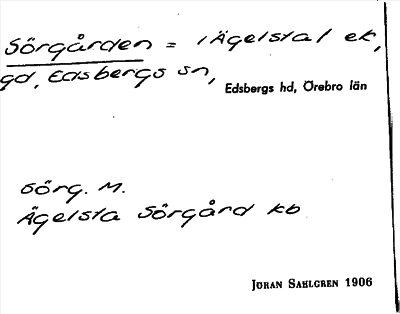 Sörgården = /Ägelsta/ ek,
gd, Edsbergs sn,
Edsbergs hd, Örebro län
sörg. M.
Ägelsta Sörgård kb
JÖRAN SAHLGREN 1906